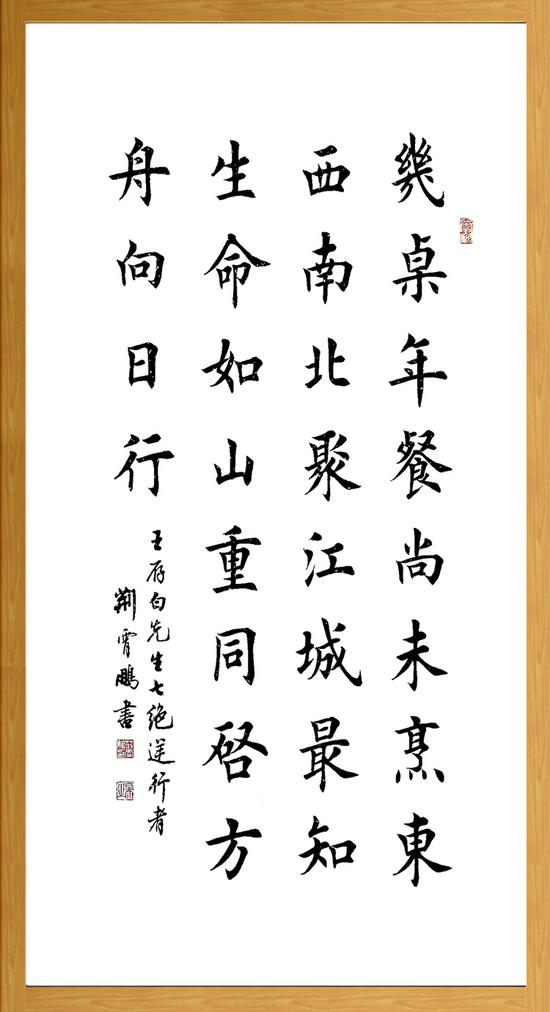 幾桌年餐尚未烹東
西南北聚江城最知
生命如山重同啓方
舟向日行
王存白先生七绝逆行者
荆霄鵬書